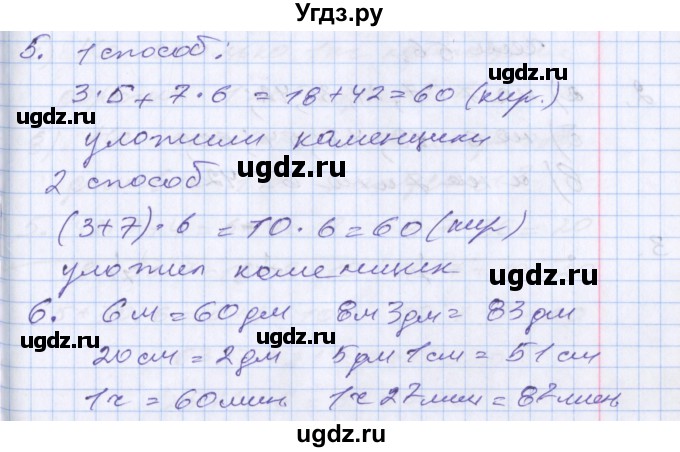 Угдз.ру
5. 1 способ:
3·5+7·6=18+42=60 (кир.)
уложили каменщики
ugdz.ru ugdz.ru
2 способ
ugdz.ru
(3+7)·6=10·6=60 (кир)
ugdz.ru
уложил каменщик
ugdz.ru
6. 6м=60дм 8м 3дм=83дм
ugdz.ru ugdz.ru
20см=2дм 5дм 1см=51см
1ч=60мин 1ч 27мин=87мин
ugdz.ru ugdz.ru
ugdz.ru